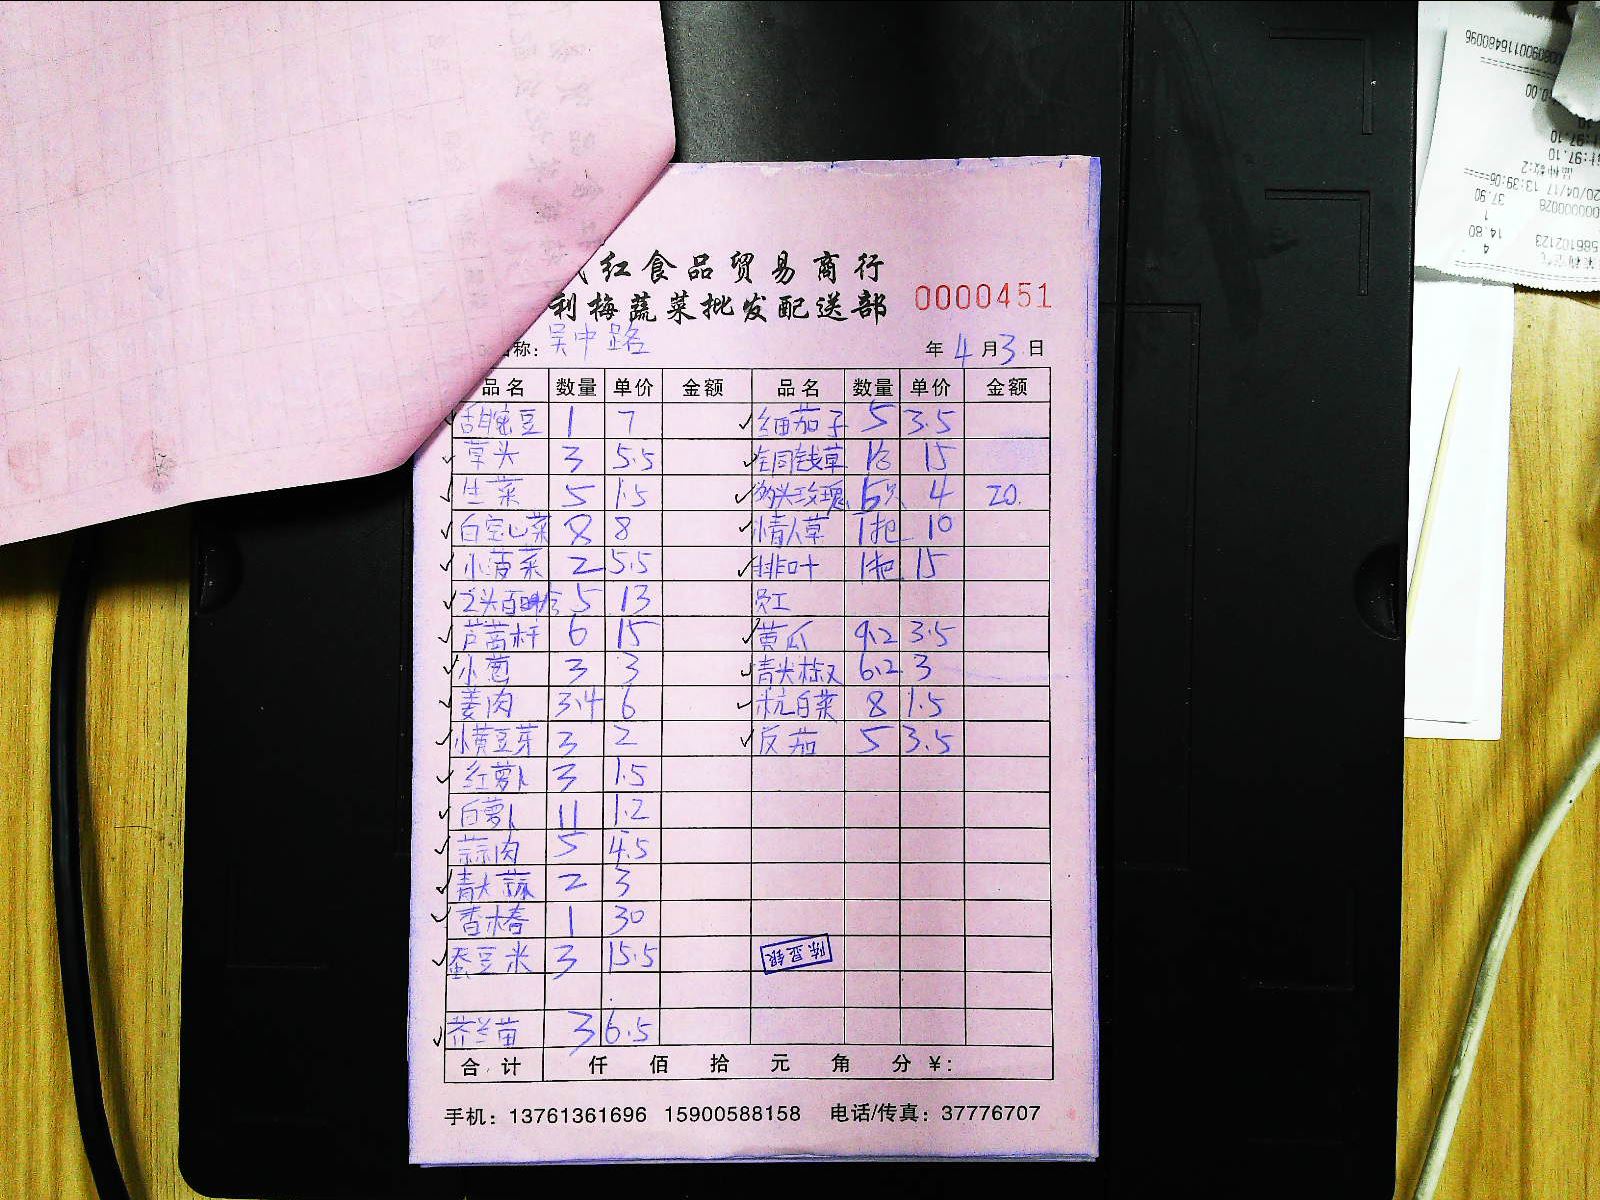 红食品贸易商行
利梅蔬菜批发配送部 0000451
称: 吴中路 年 4 月 3 日
品名 数量 单价 金额 品名 数量 单价 金额
甜豌豆 1 7 红茄子 5 3.5
草头 3 5.5 金同钱草 15
生菜 5 1.5 多头玫瑰 5只 4 20.
白宝山菜 8 8 情人草 1把 10
小菠菜 2 5.5 排叶 1把 15
5 13 员工
芦蒿杆 6 15 黄瓜 9.2 3.5
小葱 3 3 青尖椒 6.2 3
姜肉 3.4 6 杭白菜 8 1.5
小黄豆芽 3 2 反茄 5 3.5
红萝卜 3 1.5
白萝卜 11 1.2
蒜肉 5 4.5
青大蒜 2 3
香椿 1 30
蚕豆米 3 15.5 陈显银
芥兰苗 3 6.5
合计 仟 佰 拾 元 角 分 ¥:
手机: 13761361696 15900588158 电话/传真: 37776707
00116480096
0.00
:97.10
:97.10
品种数:2
20/04/17 13:39:06
37.90
0000000028
1
14.80
586102123
4